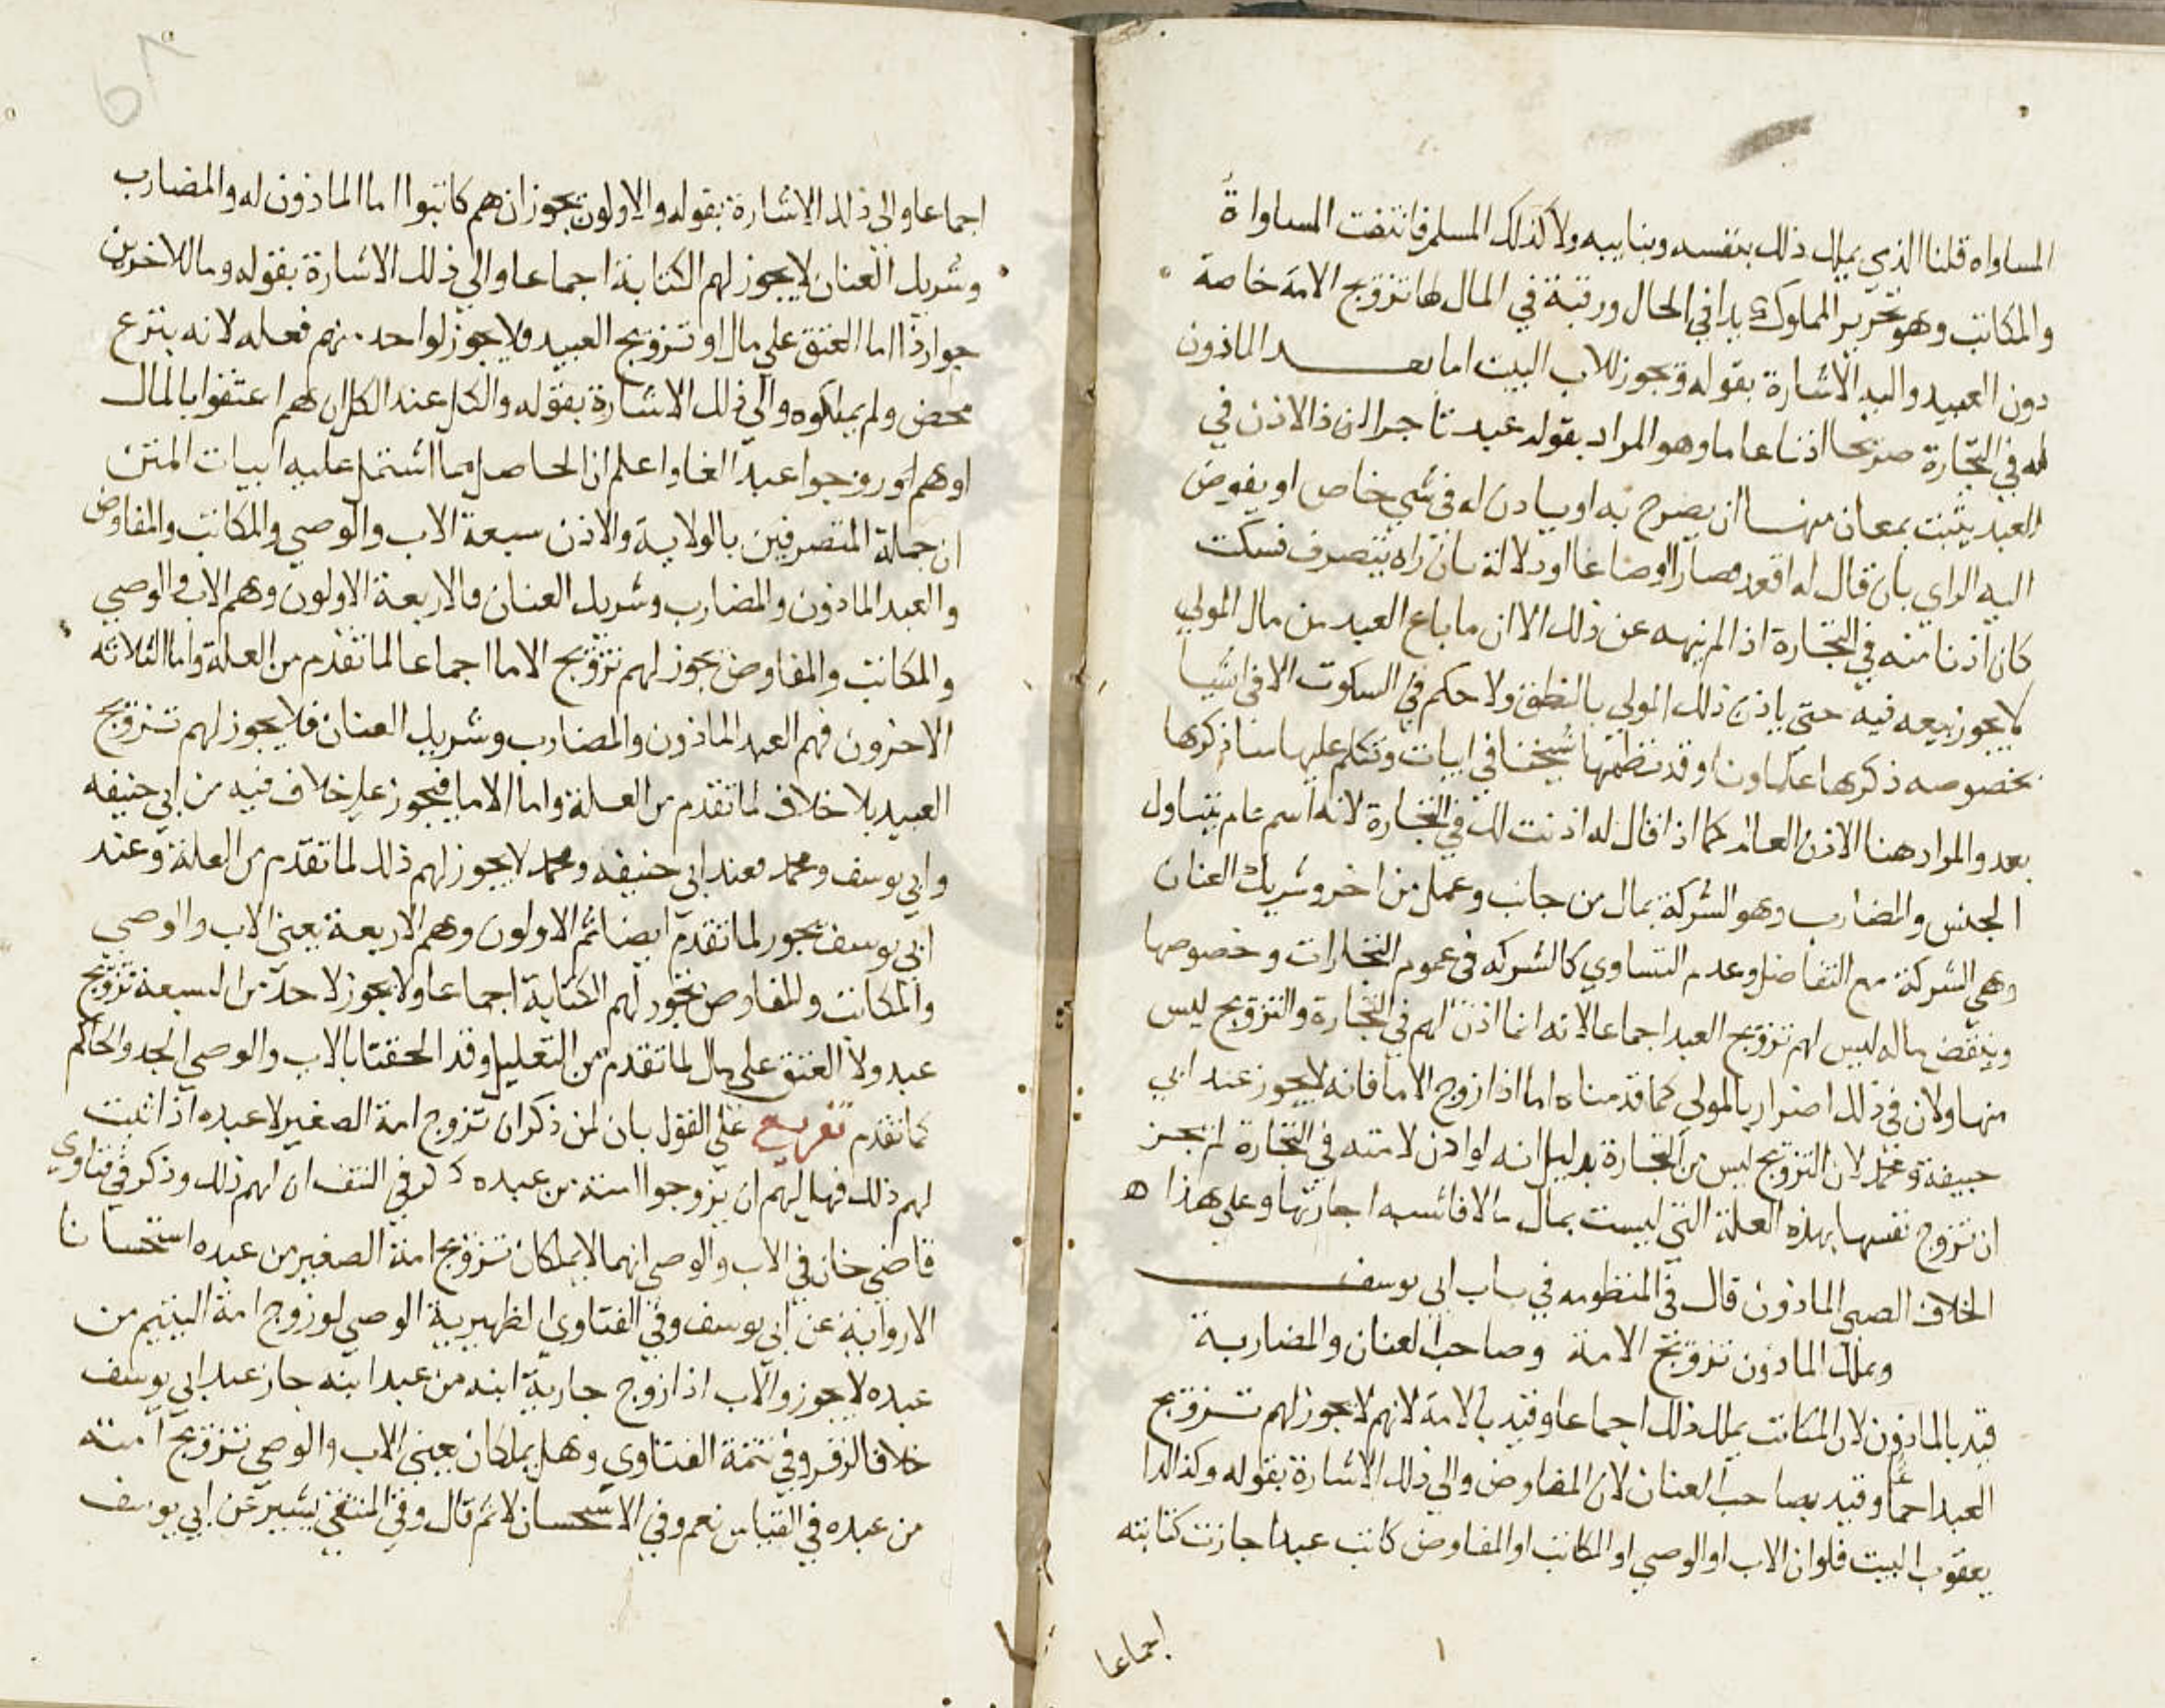 المساواه قلنا الذي يملك ذلك بنفسه وبنايبه ولا كذلك المسلم فانتفت المساواة
والمكاتب وهو تحرير المملوك يدا في الحال ورقبة في المال لها تزويج الامة خاصة
دون العبيد واليه الاشارة بقوله وتجوز للاب البيت اما بعد الماذون
له في التجارة صريحا اذنا عاما وهو المراد بقوله عبد تاجر اذن ذا الاذن في
العبد يثبت بمعان منها ان يصرح به او ياذن له في شي خاص او يفوض
اليه الراي بان قال له اقعد قصارا او صباغا او دلالة بان راه يتصرف فسكت
كان اذنا منه في التجارة اذا لم ينهه عن ذلك الا ان ما باع العبد من مال المولي
لا يجوز بيعه فيه حتي ياذن ذلك المولي بالنطق ولا حكم في السكوت الا في اشيا
بخصوصه ذكرها علماونا وقد نظمها شيخنا في ابيات وتكلم عليها
بعد والمراد هنا الاذن العام كما اذا قال له اذنت لك في التجارة لانه اسم عام يتناول
الجنس والمضارب وهو الشركة بمال من جانب وعمل من اخر وشريك العنان
وهي الشركة مع التفاضل وعدم التساوي كالشركه في عموم التجارات وخصوصها
وينقض ماله ليس لهم تزويج العبد اجماعا لانه انما اذن لهم في التجارة والتزويج ليس
منها ولان في ذلك اضرار بالمولي كما قدمناه اما اذا زوج الاما فانه لا يجوز عند ابي
حنيفة ومحمد لان التزويج ليس من التجارة بدليل انه لو اذن لامته في التجارة لم يجز
ان تزوج نفسها بهذه العلة التي ليست بمال بمال فاشبه اجارتها وعلي هذا
الخلاف الصبي الماذون قال في المنظومه في باب ابي يوسف
ويملك الماذون تزويج الامة وصاحب العنان والمضاربة
قيد بالماذون لان المكاتب يملك ذلك اجماعا وقيد بالامة لانهم لا يجوز لهم تزويج
العبد اجماعا وقيد بصاحب العنان لان المفاوض والي ذلك الاشارة بقوله وكذا لدا
يعقوب البيت فلو ان الاب او الوصي او المكاتب او المفاوض كاتب عبدا جازت كتابته
اجماعا
اجماعا والي ذلك الاشارة بقوله والاولون يجوز ان هم كاتبوا اما الماذون له والمضارب
وشريك العنان لا يجوز لهم الكتابة اجماعا والي ذلك الاشارة بقوله وما للاخرين
جواز ذا اما العتق علي مال او تزويج العبيد فلا يجوز لواحد منهم فعله لانه تبرع
محض ولم يملكوه والي ذلك الاشارة بقوله والكل عند الكل ان هم اعتقوا بالمال
او هم زوجوا عبدا لغا واعلم ان الحاصل مما اشتمل عليه ابيات المتن
ان جملة المتصرفين بالولاية والاذن سبعة الاب والوصي والمكاتب والمفاوض
والعبد الماذون والمضارب وشريك العنان فالاربعة الاولون وهم الاب والوصي
والمكاتب والمفاوض يجوز لهم تزويج الاما اجماعا لما تقدم من العلة واما الثلاثه
الاخرون فهم العبد الماذون والمضارب وشريك العنان فلا يجوز لهم تزويج
العبيد بلا خلاف لما تقدم من العلة واما الاما فيجوز علي خلاف فيه من ابي حنيفه
وابي يوسف ومحمد فعند ابي حنيفه ومحمد لا يجوز لهم ذلك لما تقدم من العلة وعند
ابي يوسف يجوز لما تقدم ايضا ثم الاولون وهم الاربعة يعني الاب والوصي
والمكاتب والمفاوض يجوز لهم الكتابة اجماعا ولا يجوز لاحد من السبعة تزويج
عبد ولا العتق علي مال لما تقدم من التعليل وقد الحقنا بالاب والوصي الجد والحاكم
كما تقدم تفريع علي القول بان لمن ذكر ان تزوج امة الصغير لا عبده اذا ثبت
لهم ذلك فهل لهم ان يزوجوا امته من عبده ذكر في النتف ان لهم ذلك وذكر في فتاوي
قاضي خان في الاب والوصي انهما لا يملكان تزويج امة الصغير من عبده استحسانا
الا رواية عن ابي يوسف وفي الفتاوي الظهيرية الوصي لو زوج امة اليتيم من
عبده لا يجوز والاب اذا زوج جارية ابنه من عبد ابنه جاز عند ابي يوسف
خلافا لزفر وفي تتمة الفتاوي وهل يملكان يعني الاب والوصي تزويج امته
من عبده في القياس نعم وفي الاستحسان لا ثم قال وفي المنتقي بشير عن ابي يوسف